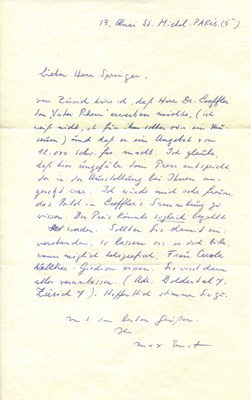 13, Quai St. Michel. PARIS. (5e)
Lieber Herr Springer.
von Zürich höre ich, daß Herr Dr. Loeffler
den "Vater Rhein" erwerben möchte, (ich
weiß nicht, ist für ihn selber oder ein Mu-
seum) und daß er ein Angebot von
12.000 macht. Ich glaube,
daß dies ungefähr dem Preis entspricht
der in der Ausstellung bei Ihnen an-
gesetzt war. Ich würde mich sehr freuen
das Bild in Loeffler's Sammlung zu
wissen. Der Preis könnte sogleich bezahlt
werden. Sollten Sie damit ein-
verstanden, so lassen sie es doch bitte,
wenn möglich telegrafisch, Frau Carola
Welcker-Giedion wissen. Sie wird dann
alles veranlassen. (Adr. Doldertal 7.
Zürich 7). Hoffentlich
mit den besten Grüßen.
Ihr
max Ernst